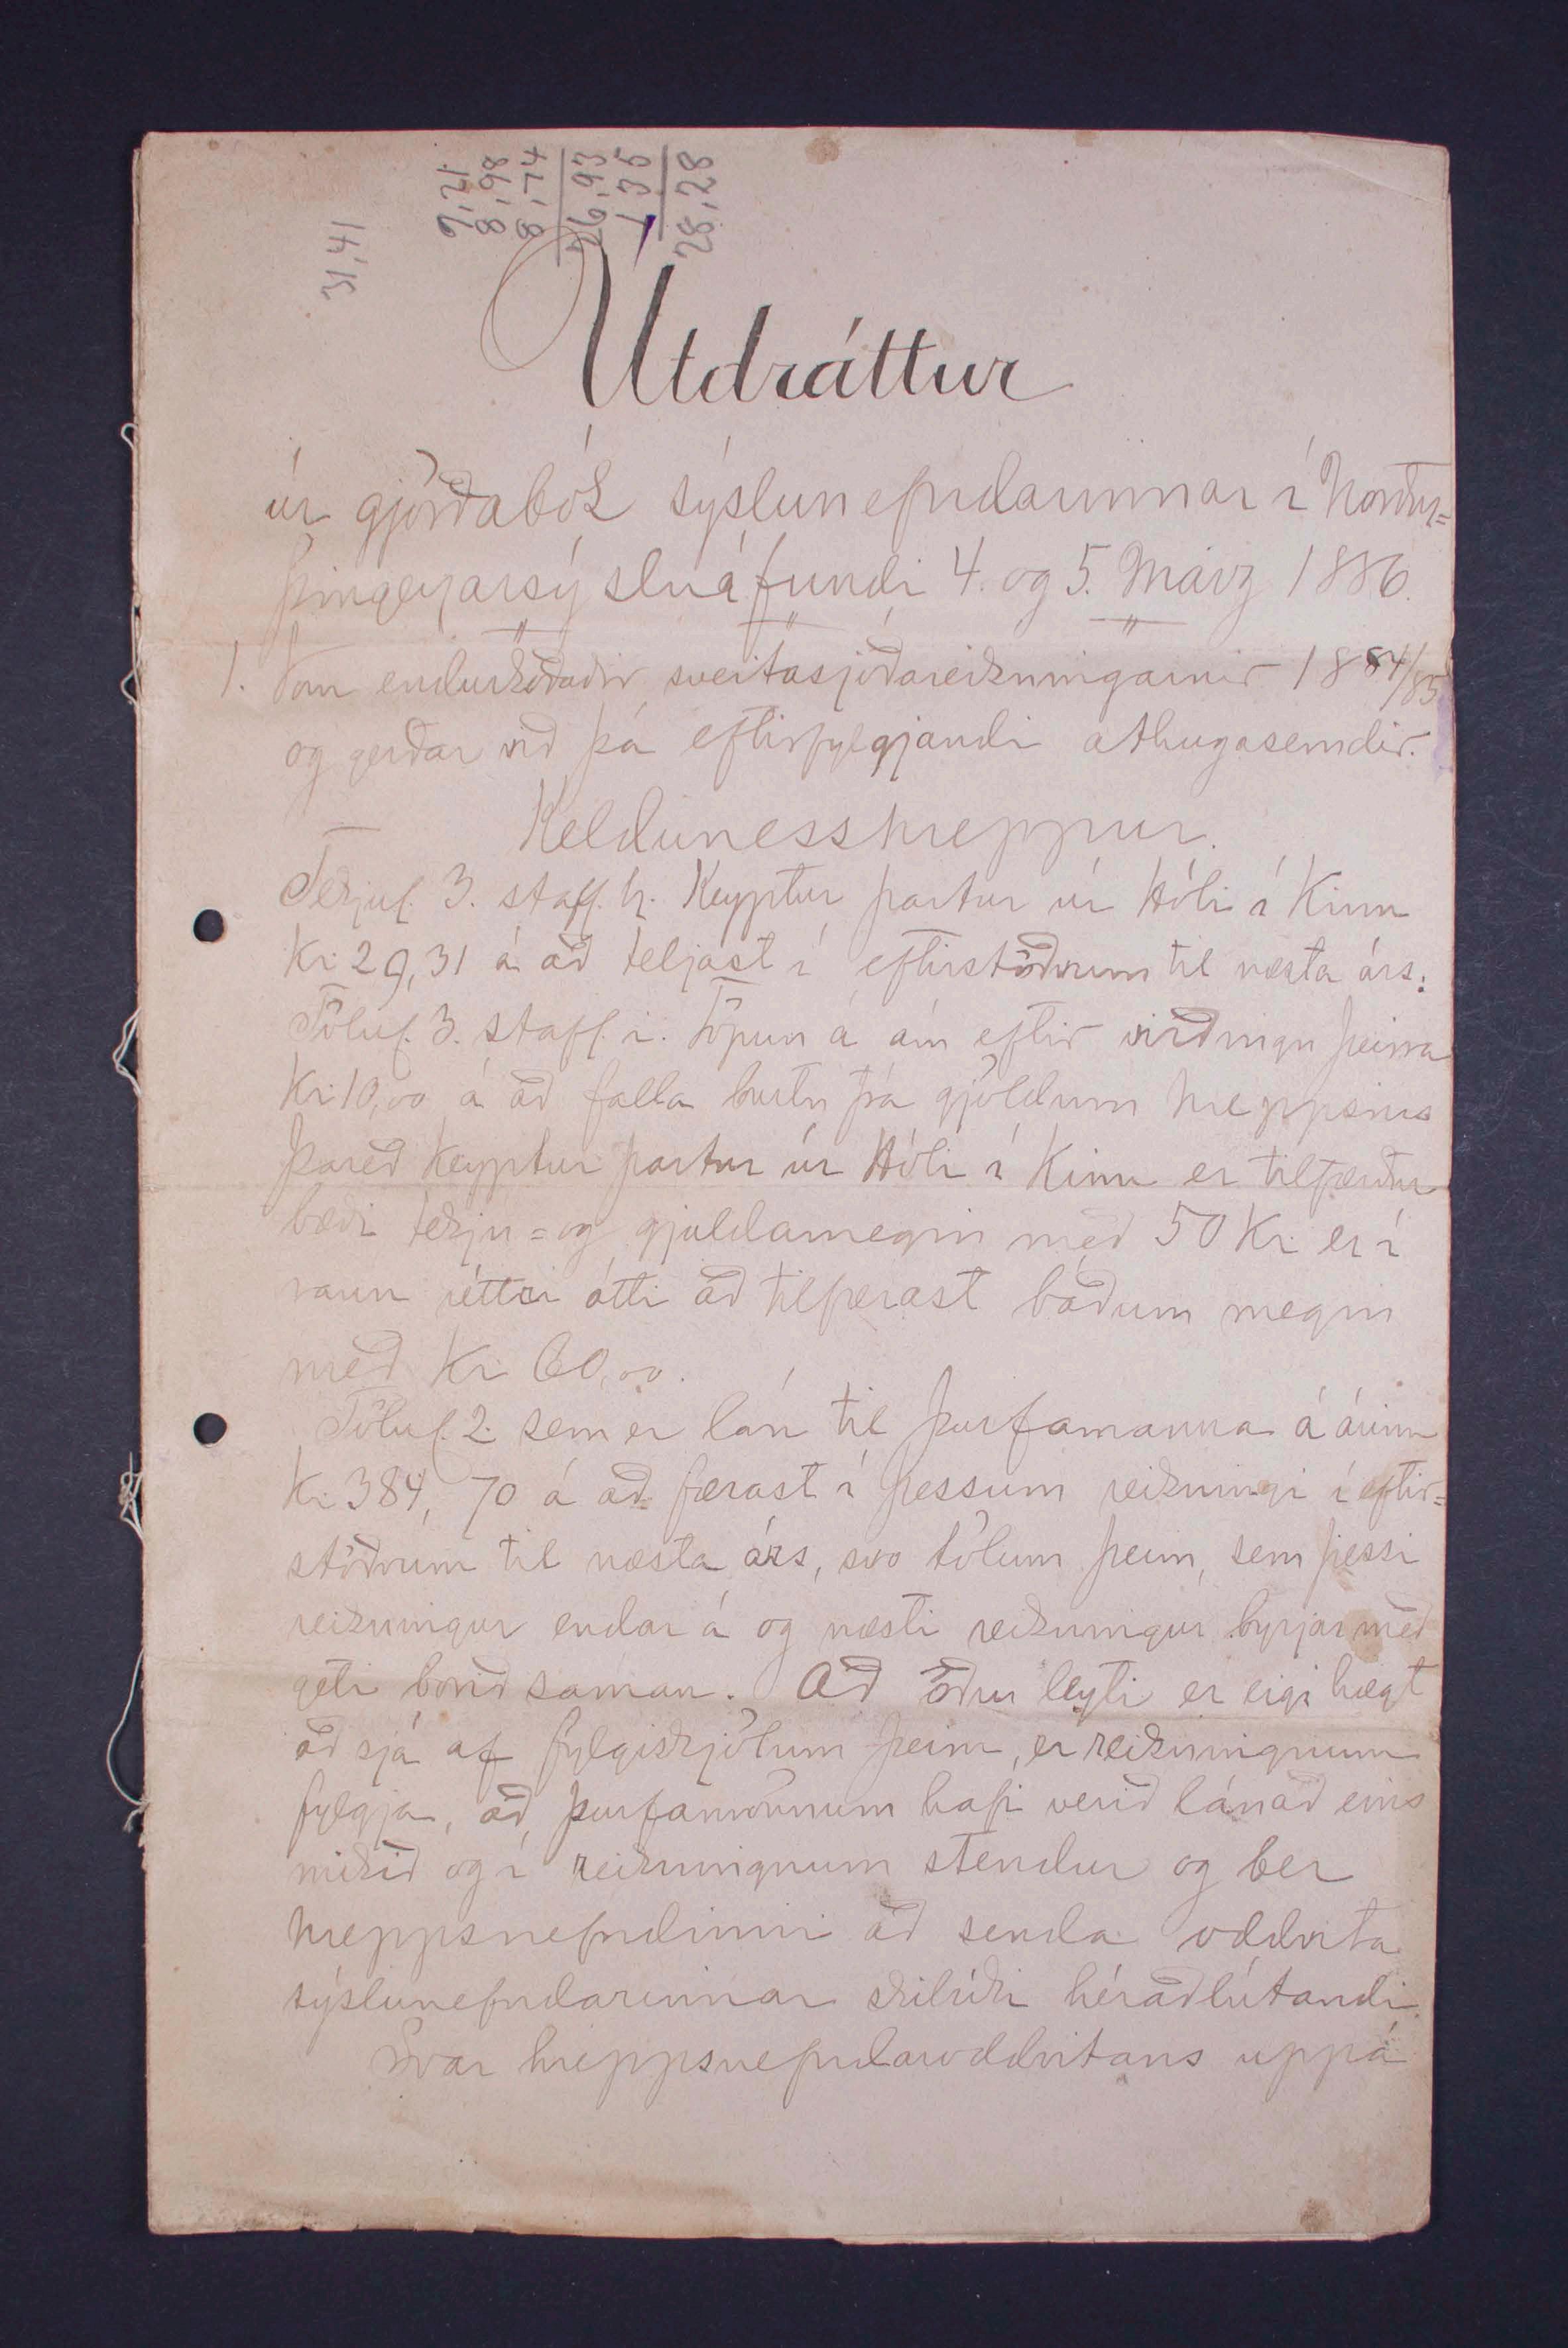 31,41
9,21
8,98
8,74
26,93
1 35
28,28
Útdráttur
úr gjörðabók sýslunefndarinnar í Norður=
þingeyjarsýslu á fundi 4. og 5. Marz 1886.
1. Voru endurskoðaðir sveitasjóðareikningarnir 1884/85
og gerðar við þá eftirfylgjandi athugasemdir.
Keldunesshreppur.
Tekjul. 3. staff. h. Keyptur partur úr Hóli í Kinn
Kr 29,31 á að teljast í eftirstöðvum til næsta árs.
Tölul. 3. staff. i. Töpun á ám eftir virðingu þeirra
Kr 10,00 á að falla burtu frá gjöldum hreppsins
þareð Keyptur partur úr Hóli í Kinn er tilfærður
bæði tekju= og gjaldamegin með 50 Kr. er í
raun réttri átti að tilfærast báðum megin
með Kr 60,00.
Tölul. 2. sem er lán til þurfamanna á árinu
Kr 384,70 á að færast í þessum reikningi í eftir=
stöðvum til næsta árs, svo tölum þeim, sem þessi
reikningur endar á og næsti reikningur byrjar með
geti borið saman. Að öðru leyti er eigi hægt
að sjá af fylgiskjölum þeim, er reikningnum
fylgja, að þurfamönnum hafi verið lánað eins
mikið og í reikningnum stendur og ber
hreppsnefndinni að senda oddvita
sýslunefndarinnar skilríki héraðlútandi.
Svar hreppsnefndaroddvitans uppá